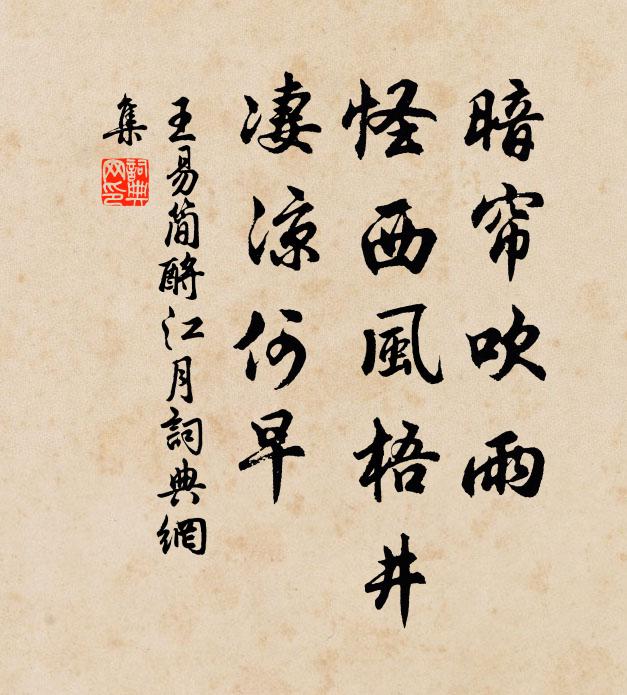 暗帘吹雨
怪西風梧井
淒涼何早
王易簡酹江月詞典網
集
詞典網印